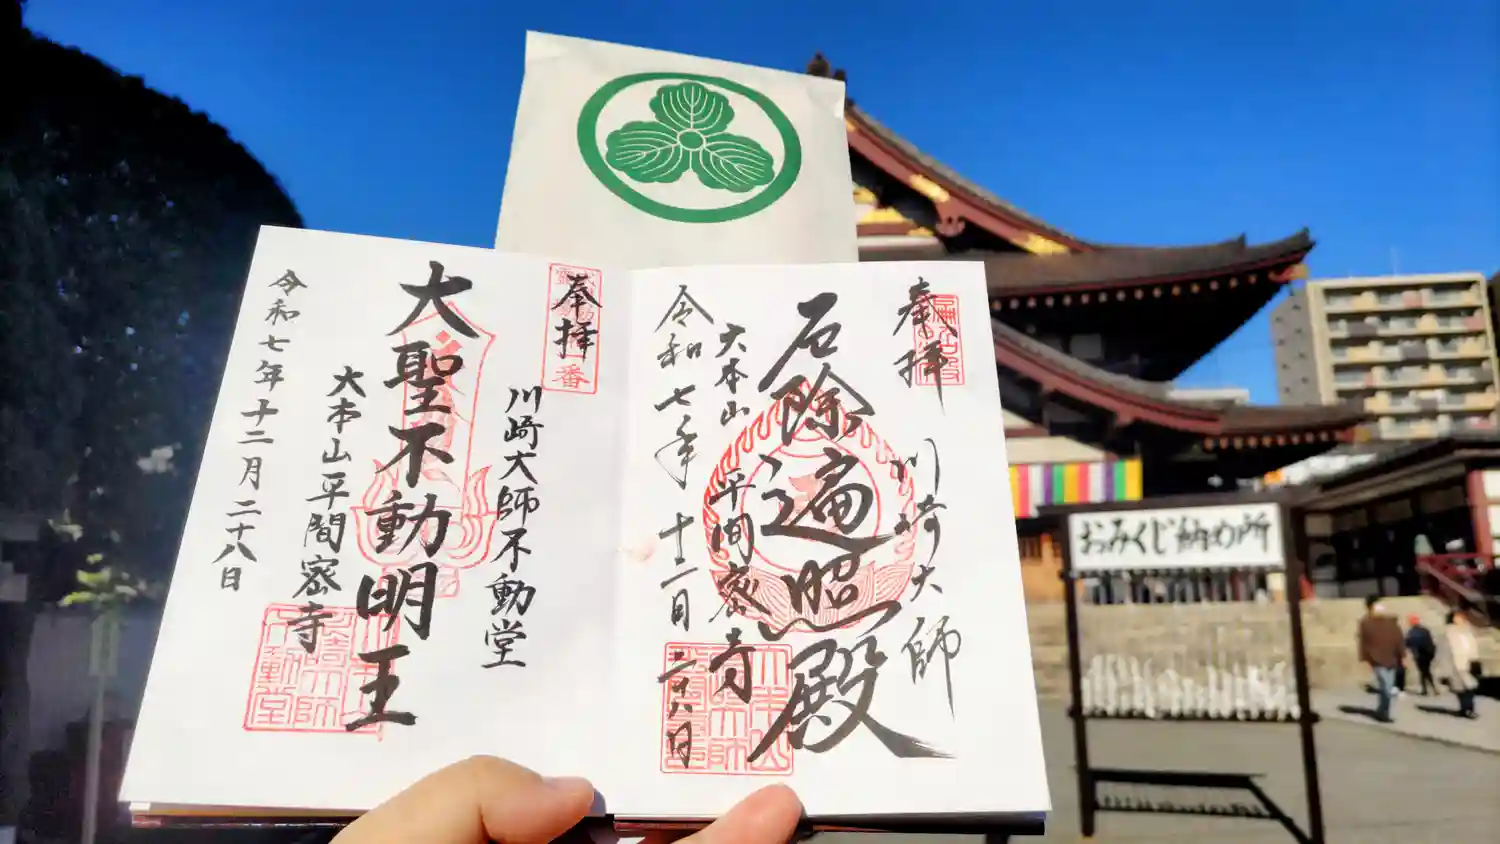 奉拝
川崎大師
厄除遍照殿
大本山 平間密寺
令和七年 十二月 二十八日
奉拝
番
川崎大師不動堂
大聖不動明王
大本山平間密寺
令和七年十二月二十八日
おみくじ納め所